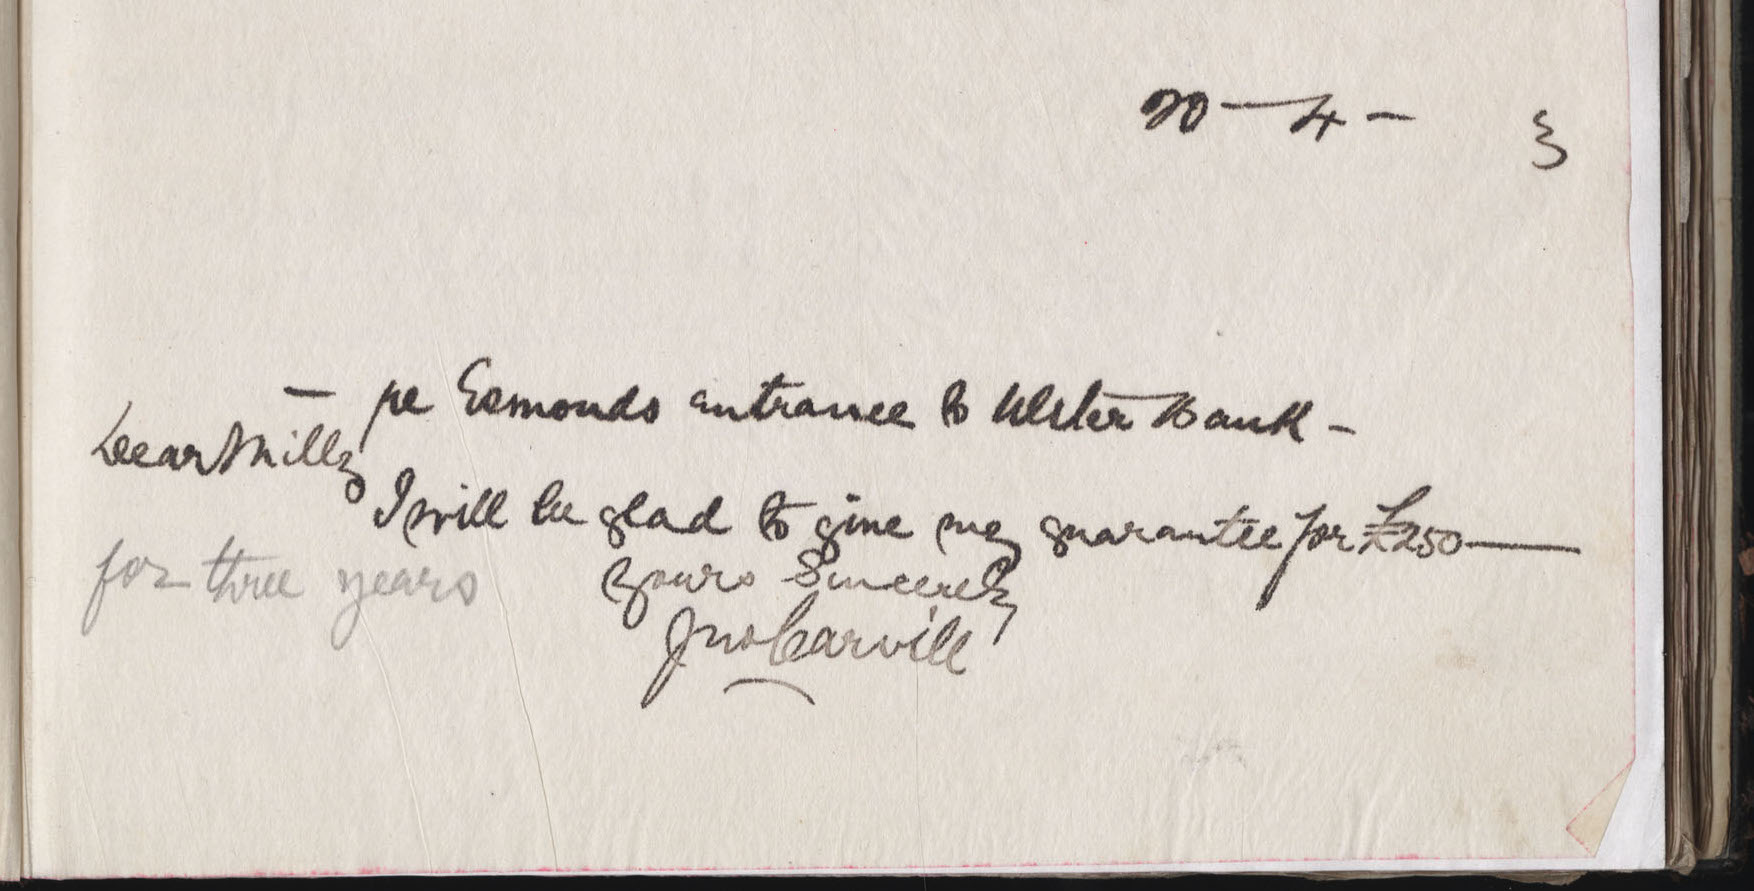 20-4- 3
- re Esmonds entrance to Ulster Bank -
Dear Mills
I will be glad to give my guarantee for £250
for three years
Yours Sincerely
Jno Carvill